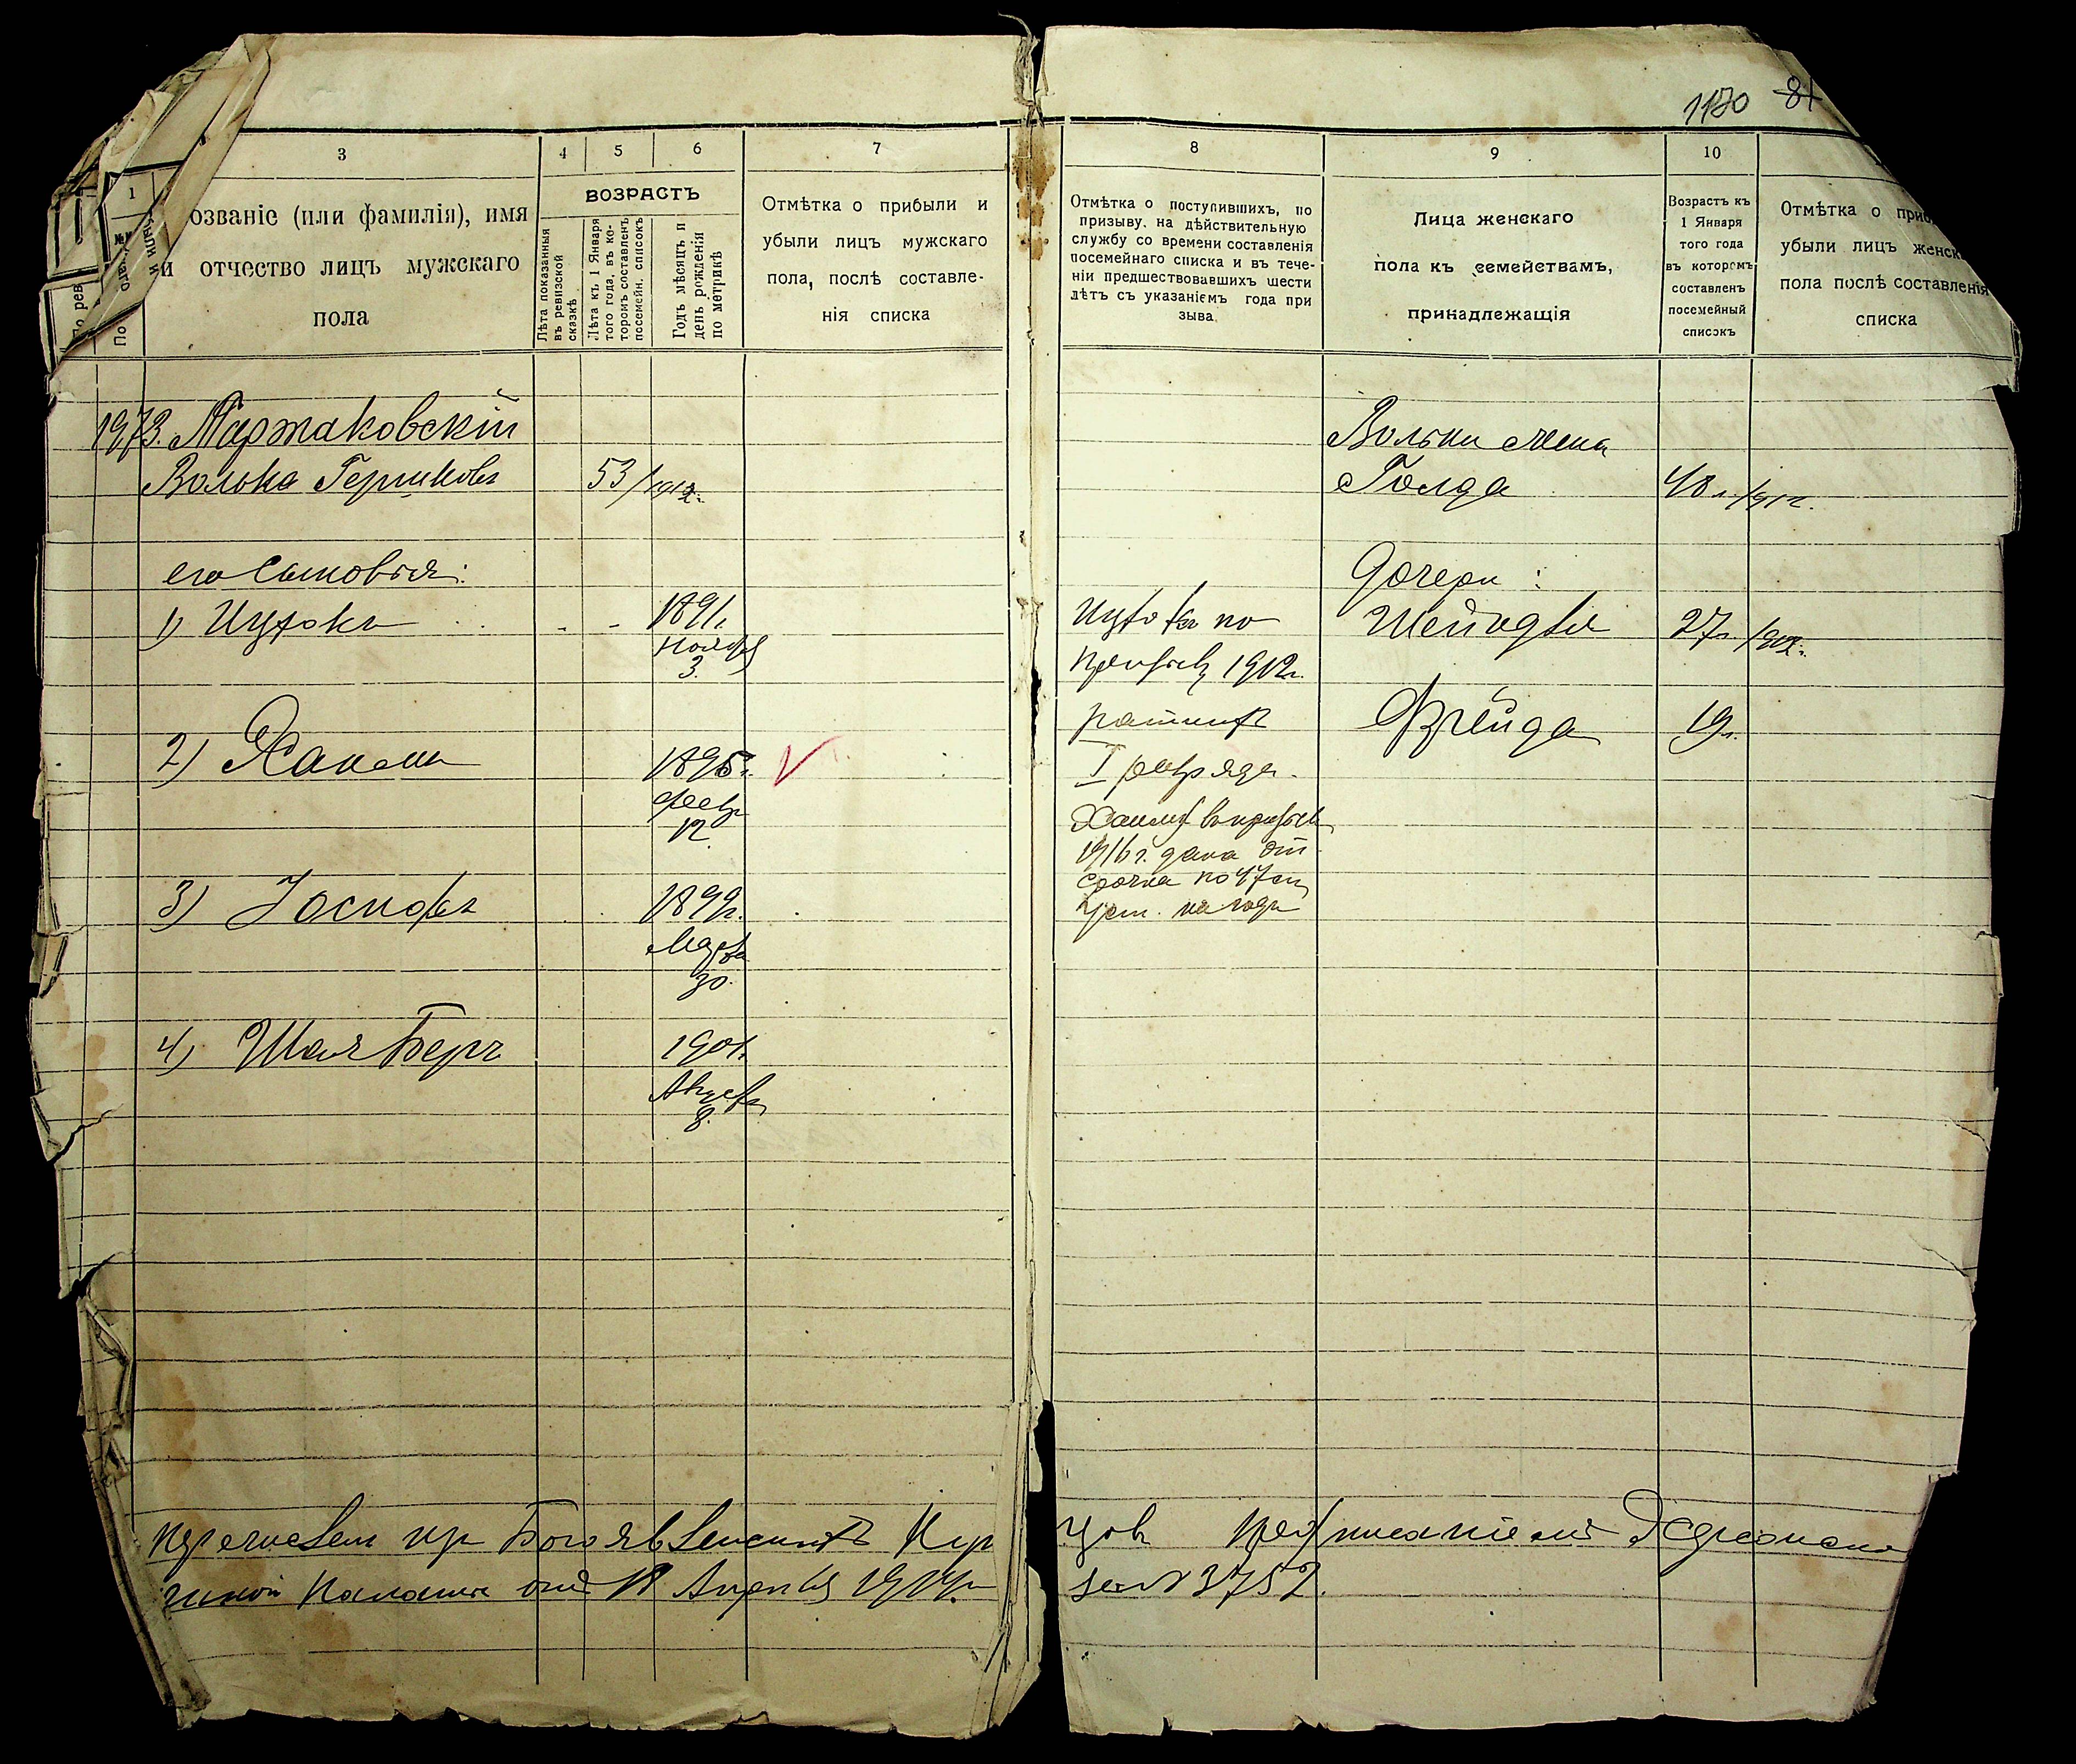 1170 81
1
3
4
5
6
7
8
9
10
озваніе (или фамилія), имя
и отчество лицъ мужскаго
пола
ВОЗРАСТЪ
Лѣта показанныя
въ ревизской
сказкѣ
Лѣта къ 1 Января
того года, въ ко-
торомъ составленъ
посемейн. списокъ
Годъ мѣсяцъ и
день рожденія
по метрикѣ
Отмѣтка о прибыли и
убыли лицъ мужскаго
пола, послѣ составле-
нія списка
Отмѣтка о поступившихъ, по
призыву, на дѣйствительную
службу со времени составленія
посемейнаго списка и въ тече-
ніи предшествовавшихъ шести
лѣтъ съ указаніемъ года при
зыва
Лица женскаго
пола къ семействамъ,
принадлежащія
Возрастъ къ
1 Января
того года
въ которомъ
составленъ
посемейный
списокъ
Отмѣтка о приб
убыли лицъ женск
пола послѣ составленія
списка
1973. Мартаковскій
Волька Гершковъ 53/1912г.
Вольки жена
Голда 48 л./912г.
его сыновья:
Дочери:
1) Ицхокъ 1891г.
Ноября
3.
Ицхокъ по
призыву 1912г.
ратникъ
I разряда.
Шейндля 27л. /1912г.
Фрейда 19л.
2) Хаимъ 1895г.
Февр.
12
Хаиму въ призывъ
1916г. дана от
срочка по 47 ст.
Уст. на годъ
3) Іосифъ 1899г.
Марта
30.
4) Шая Беръ 1901г.
Августа
8.
перечисленъ изъ Богоявленскихъ Куп
цовъ предписаніемъ Херсонской
зенной Палаты отъ 18 Апрѣля 1914г.
за № 3752.